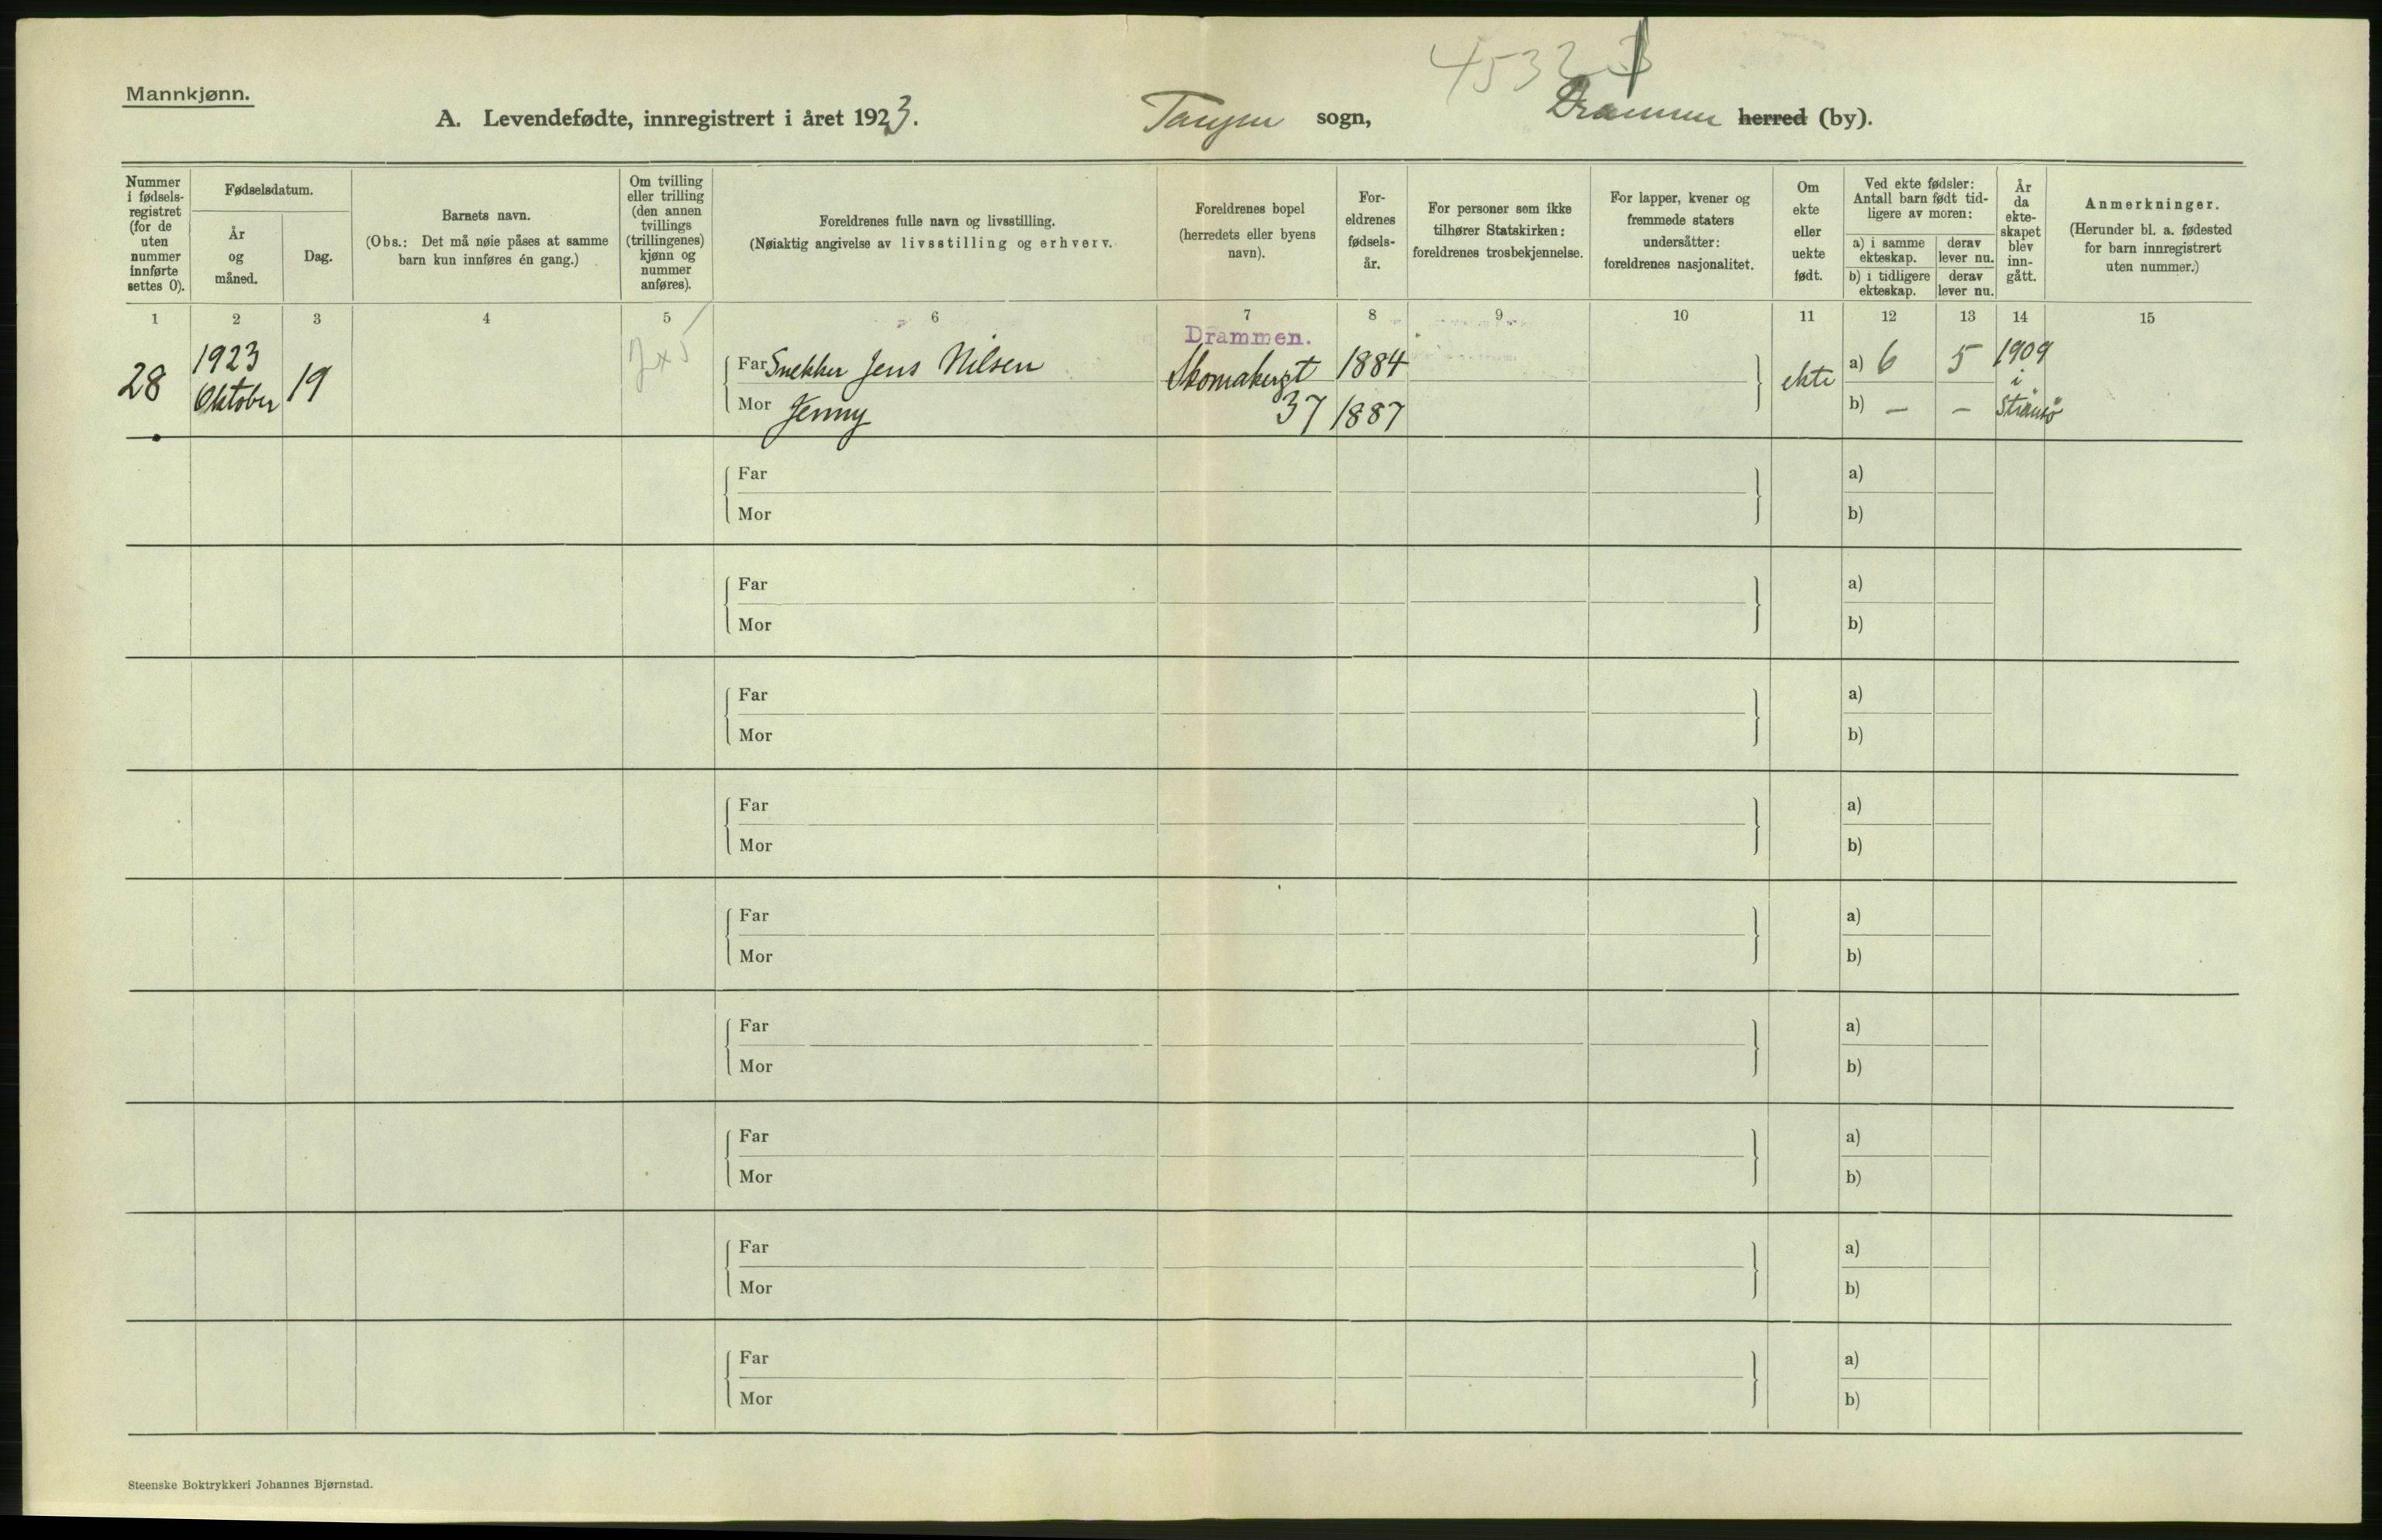 Mannkjønn.
A. Levendefødte, innregistrert i året 1923. Tangen sogn, Drammen herred (by).
Nummer
i fødsels-
registret
(for de
uten
nummer
innførte
settes 0).
Fødselsdatum.
År
og
måned.
Dag.
Barnets navn.
(Obs.: Det må nøie påses at samme
barn kun innføres én gang.)
Om tvilling
eller trilling
(den annen
tvillings
(trillingenes)
kjønn og
nummer
anføres).
Foreldrenes fulle navn og livsstilling.
(Nøiaktig angivelse av livsstilling og erhverv.
Foreldrenes bopel
(herredets eller byens
navn).
For-
eldrenes
fødsels-
år.
For personer som ikke
tilhører Statskirken:
foreldrenes trosbekjennelse.
For lapper, kvener og
fremmede staters
undersåtter:
foreldrenes nasjonalitet.
Om
ekte
eller
uekte
født.
Ved ekte fødsler:
Antall barn født tid-
ligere av moren:
a) i samme
ekteskap.
derav
lever nu.
b) i tidligere
ekteskap.
derav
lever nu.
År
da
ekte-
skapet
blev
inn-
gått.
Anmerkninger.
(Herunder bl. a. fødested
for barn innregistrert
uten nummer.)
1 2 3 4 5 6 7 8 9 10 11 12 13 14 15
28
1923
Oktober
19
Far Snekker Jens Nilsen
Mor Jenny
Drammen.
Skomakergt
37
1884
1887
ekte
a) 6 5
b) – –
1909
i
Strømsø
Far a)
Mor b)
Far a)
Mor b)
Far a)
Mor b)
Far a)
Mor b)
Far a)
Mor b)
Far a)
Mor b)
Far a)
Mor b)
Far a)
Mor b)
Far a)
Mor b)
Steenske Boktrykkeri Johannes Bjørnstad.